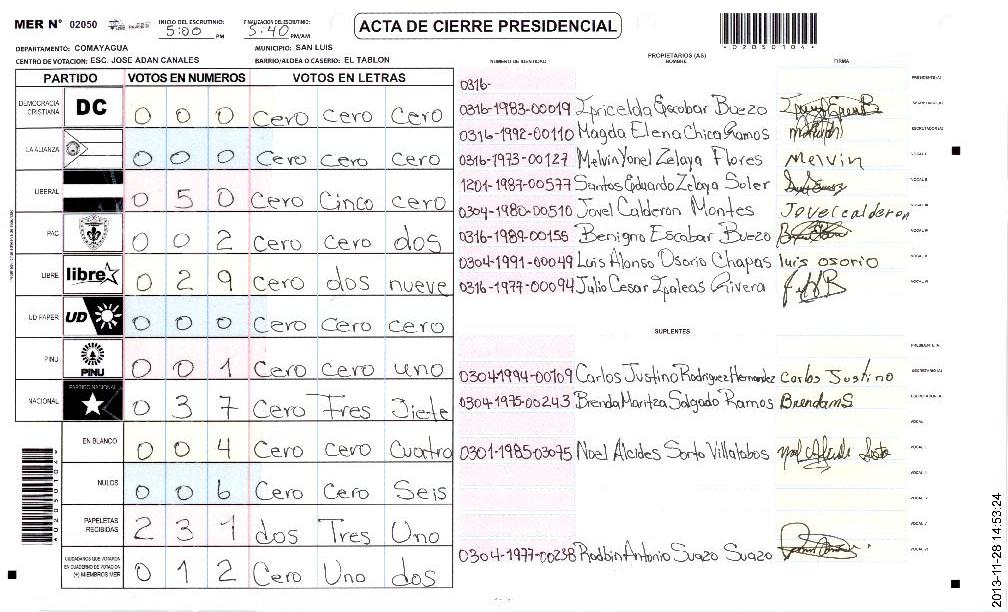 MER N° 02050 INICIO DEL ESCRUTINIO: 5:00 PM FINALIZACION DEL ESCRUTINIO: 5:40 PM/AM
ACTA DE CIERRE PRESIDENCIAL
DEPARTAMENTO: COMAYAGUA MUNICIPIO: SAN LUIS
CENTRO DE VOTACION: ESC. JOSE ADAN CANALES BARRIO/ALDEA O CASERIO: EL TABLON
PARTIDO VOTOS EN NUMEROS VOTOS EN LETRAS
DEMOCRACIA CRISTIANA DC 0 0 0 Cero Cero Cero
LA ALIANZA 0 0 0 Cero Cero Cero
LIBERAL 0 5 0 Cero Cinco cero
PAC 0 0 2 Cero Cero dos
LIBRE libre 0 2 9 Cero dos nueve
UD FAPER UD 0 0 0 Cero Cero cero
PINU PINU 0 0 1 Cero cero uno
NACIONAL PARTIDO NACIONAL 0 3 7 Cero Tres Siete
EN BLANCO 0 0 4 Cero Cero Cuatro
NULOS 0 0 6 Cero Cero Seis
PAPELETAS RECIBIDAS 2 3 1 dos Tres Uno
CIUDADANOS QUE VOTARON EN CUADERNO DE VOTACION (+) MIEMBROS MER 0 1 2 Cero Uno dos
*02050104*
PROPIETARIOS (AS)
NUMERO DE IDENTIDAD NOMBRE FIRMA
0316- PRESIDENTE(A)
0316-1983-00019 Escobar Buezo SECRETARIO(A)
0316-1992-00110 Magda Elena Chica Ramos ESCRUTADOR(A)
0316-1973-00127 Melvin Yanel Zelaya Flores Melvin VOCAL I
1201-1987-00577 Santos Eduardo Zelaya Soler VOCAL II
0304-1980-00510 Jovel Calderon Montes Jovel calderon VOCAL III
0316-1989-00155 Benigno Escobar Buezo VOCAL IV
0304-1991-00049 Luis Alonso Osorio Chapas luis osorio VOCAL V
0316-1977-00094 Julio Cesar Rivera VOCAL VI
SUPLENTES
PRESIDENTE(A)
0304-1994-00109 Carlos Justino Rodriguez Hernandez Carlos Justino SECRETARIO(A)
0304-1975-00243 Brenda Maritza Salgado Ramos BrendamS ESCRUTADOR(A)
VOCAL I
0301-1985-03075 Noel Alcides Sorto Villalobos VOCAL II
VOCAL III
VOCAL IV
VOCAL V
0304-1977-00238 Robbin Antonio Suazo Suazo VOCAL VI
2013-11-28 14:53:24